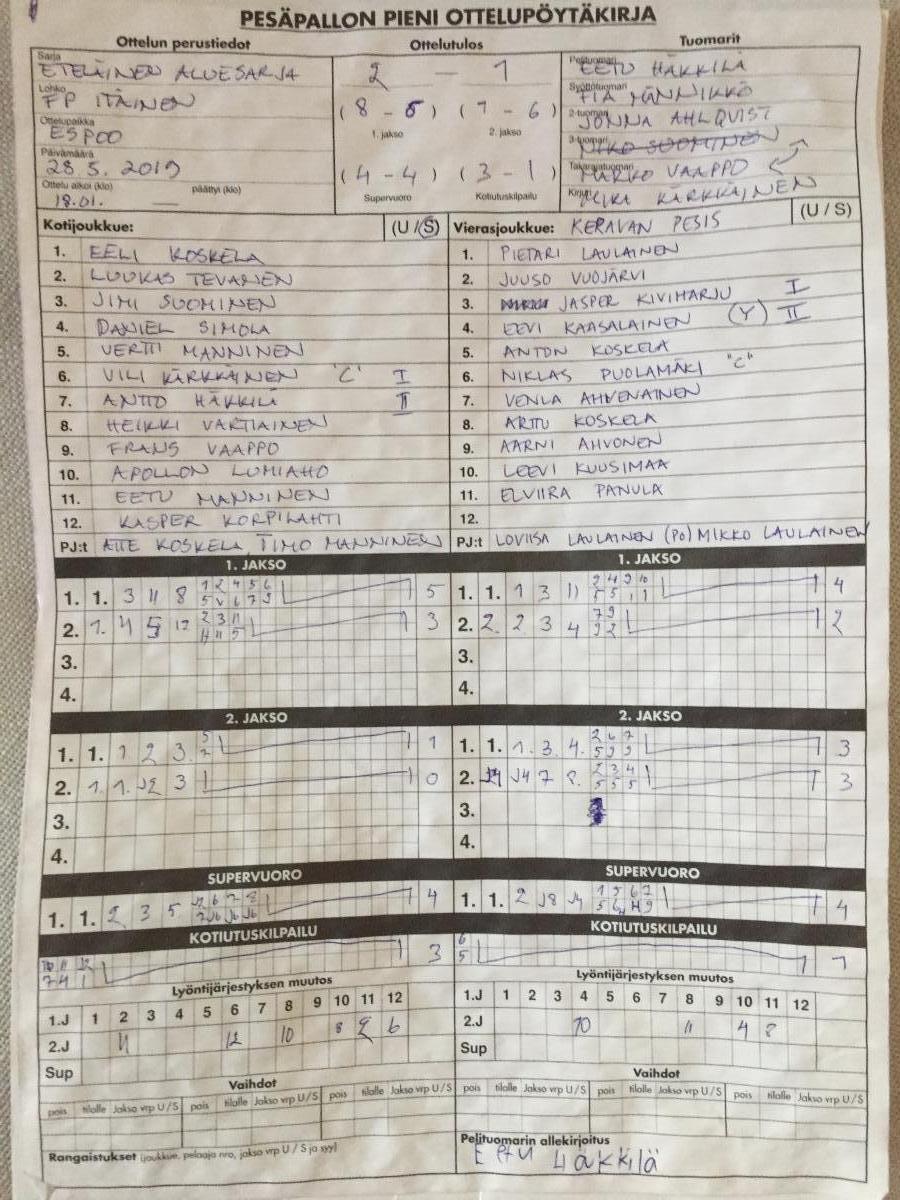 PESÄPALLON PIENI OTTELUPÖYTÄKIRJA
Ottelun perustiedot Ottelutulos Tuomarit
Sarja ETELÄINEN ALUESARJA 2 — 1 Pelituomari EETU HÄKKILÄ
Lohko FP ITÄINEN (8 - 6) (7 - 6) Syöttötuomari PIA MÄNNIKKÖ
1. jakso 2. jakso
Ottelupaikka ESPOO 2-tuomari JONNA AHLQVIST
3-tuomari NIKO SUOMINEN
Päivämäärä 28.5.2019 (4 - 4) (3 - 1) Takarajatuomari MARKO VAAPPO
Ottelu alkoi (klo) päättyi (klo) Supervuoro Kotiutuskilpailu Kirjuri KÄRKKÄINEN
18.01. —
Kotijoukkue: (U / S) Vierasjoukkue: KERAVAN PESIS (U / S)
1. EELI KOSKELA 1. PIETARI LAULAINEN
2. LUUKAS TEVANEN 2. JUUSO VUOJÄRVI
3. JIMI SUOMINEN 3. JASPER KIVIHARJU I
4. DANIEL SIMOLA 4. EEVI KAASALAINEN (Y) II
5. VERTTI MANNINEN 5. ANTON KOSKELA
6. VILI KÄRKKÄINEN "C" I 6. NIKLAS PUOLAMÄKI "C"
7. ANTTO HÄKKILÄ II 7. VENLA AHVENAINEN
8. HEIKKI VARTIAINEN 8. ARTTU KOSKELA
9. FRANS VAAPPO 9. AARNI AHVONEN
10. APOLLON LUMIAHO 10. LEEVI KUUSIMAA
11. EETU MANNINEN 11. ELVIIRA PANULA
12. KASPER KORPILAHTI 12.
PJ:t ATTE KOSKELA, TIMO MANNINEN PJ:t LOVIISA LAULAINEN (PO) MIKKO LAULAINEN
1. JAKSO 1. JAKSO
1. 1. 3 11 8 1 2 4 5 6 5 1. 1. 1 3 11 2 4 9 10 4
5 V 6 7 9 5 5 1 1
2. 1. 4 5 12 2 3 11 3 2. 2. 2 3 4 7 9 2
4 11 5 9 2
3. 3.
4. 4.
2. JAKSO 2. JAKSO
1. 1. 1 2 3 5 1 1. 1. 1. 3. 4. 2 6 7 3
7 5 9 9
2. 1. 1. 12 3 0 2. 4 7 8. 2 3 4 3
5 5 5
3. 3.
4. 4.
SUPERVUORO SUPERVUORO
1. 1. 2 3 5 6 7 8 4 1. 1. 2 1 5 6 7 4
KOTIUTUSKILPAILU KOTIUTUSKILPAILU
10 11 12 3 6 1
7 4 1 5
Lyöntijärjestyksen muutos Lyöntijärjestyksen muutos
1.J 1 2 3 4 5 6 7 8 9 10 11 12 1.J 1 2 3 4 5 6 7 8 9 10 11 12
2.J 11 12 10 8 2 6 2.J 10 11 4 8
Sup Sup
Vaihdot Vaihdot
pois tilalle Jakso vrp U / S pois tilalle Jakso vrp U / S pois tilalle Jakso vrp U / S pois tilalle Jakso vrp U / S pois tilalle Jakso vrp U / S pois tilalle Jakso vrp U / S
Rangaistukset (joukkue, pelaaja nro, jakso vrp U / S ja syy) Pelituomarin allekirjoitus
Eetu Häkkilä